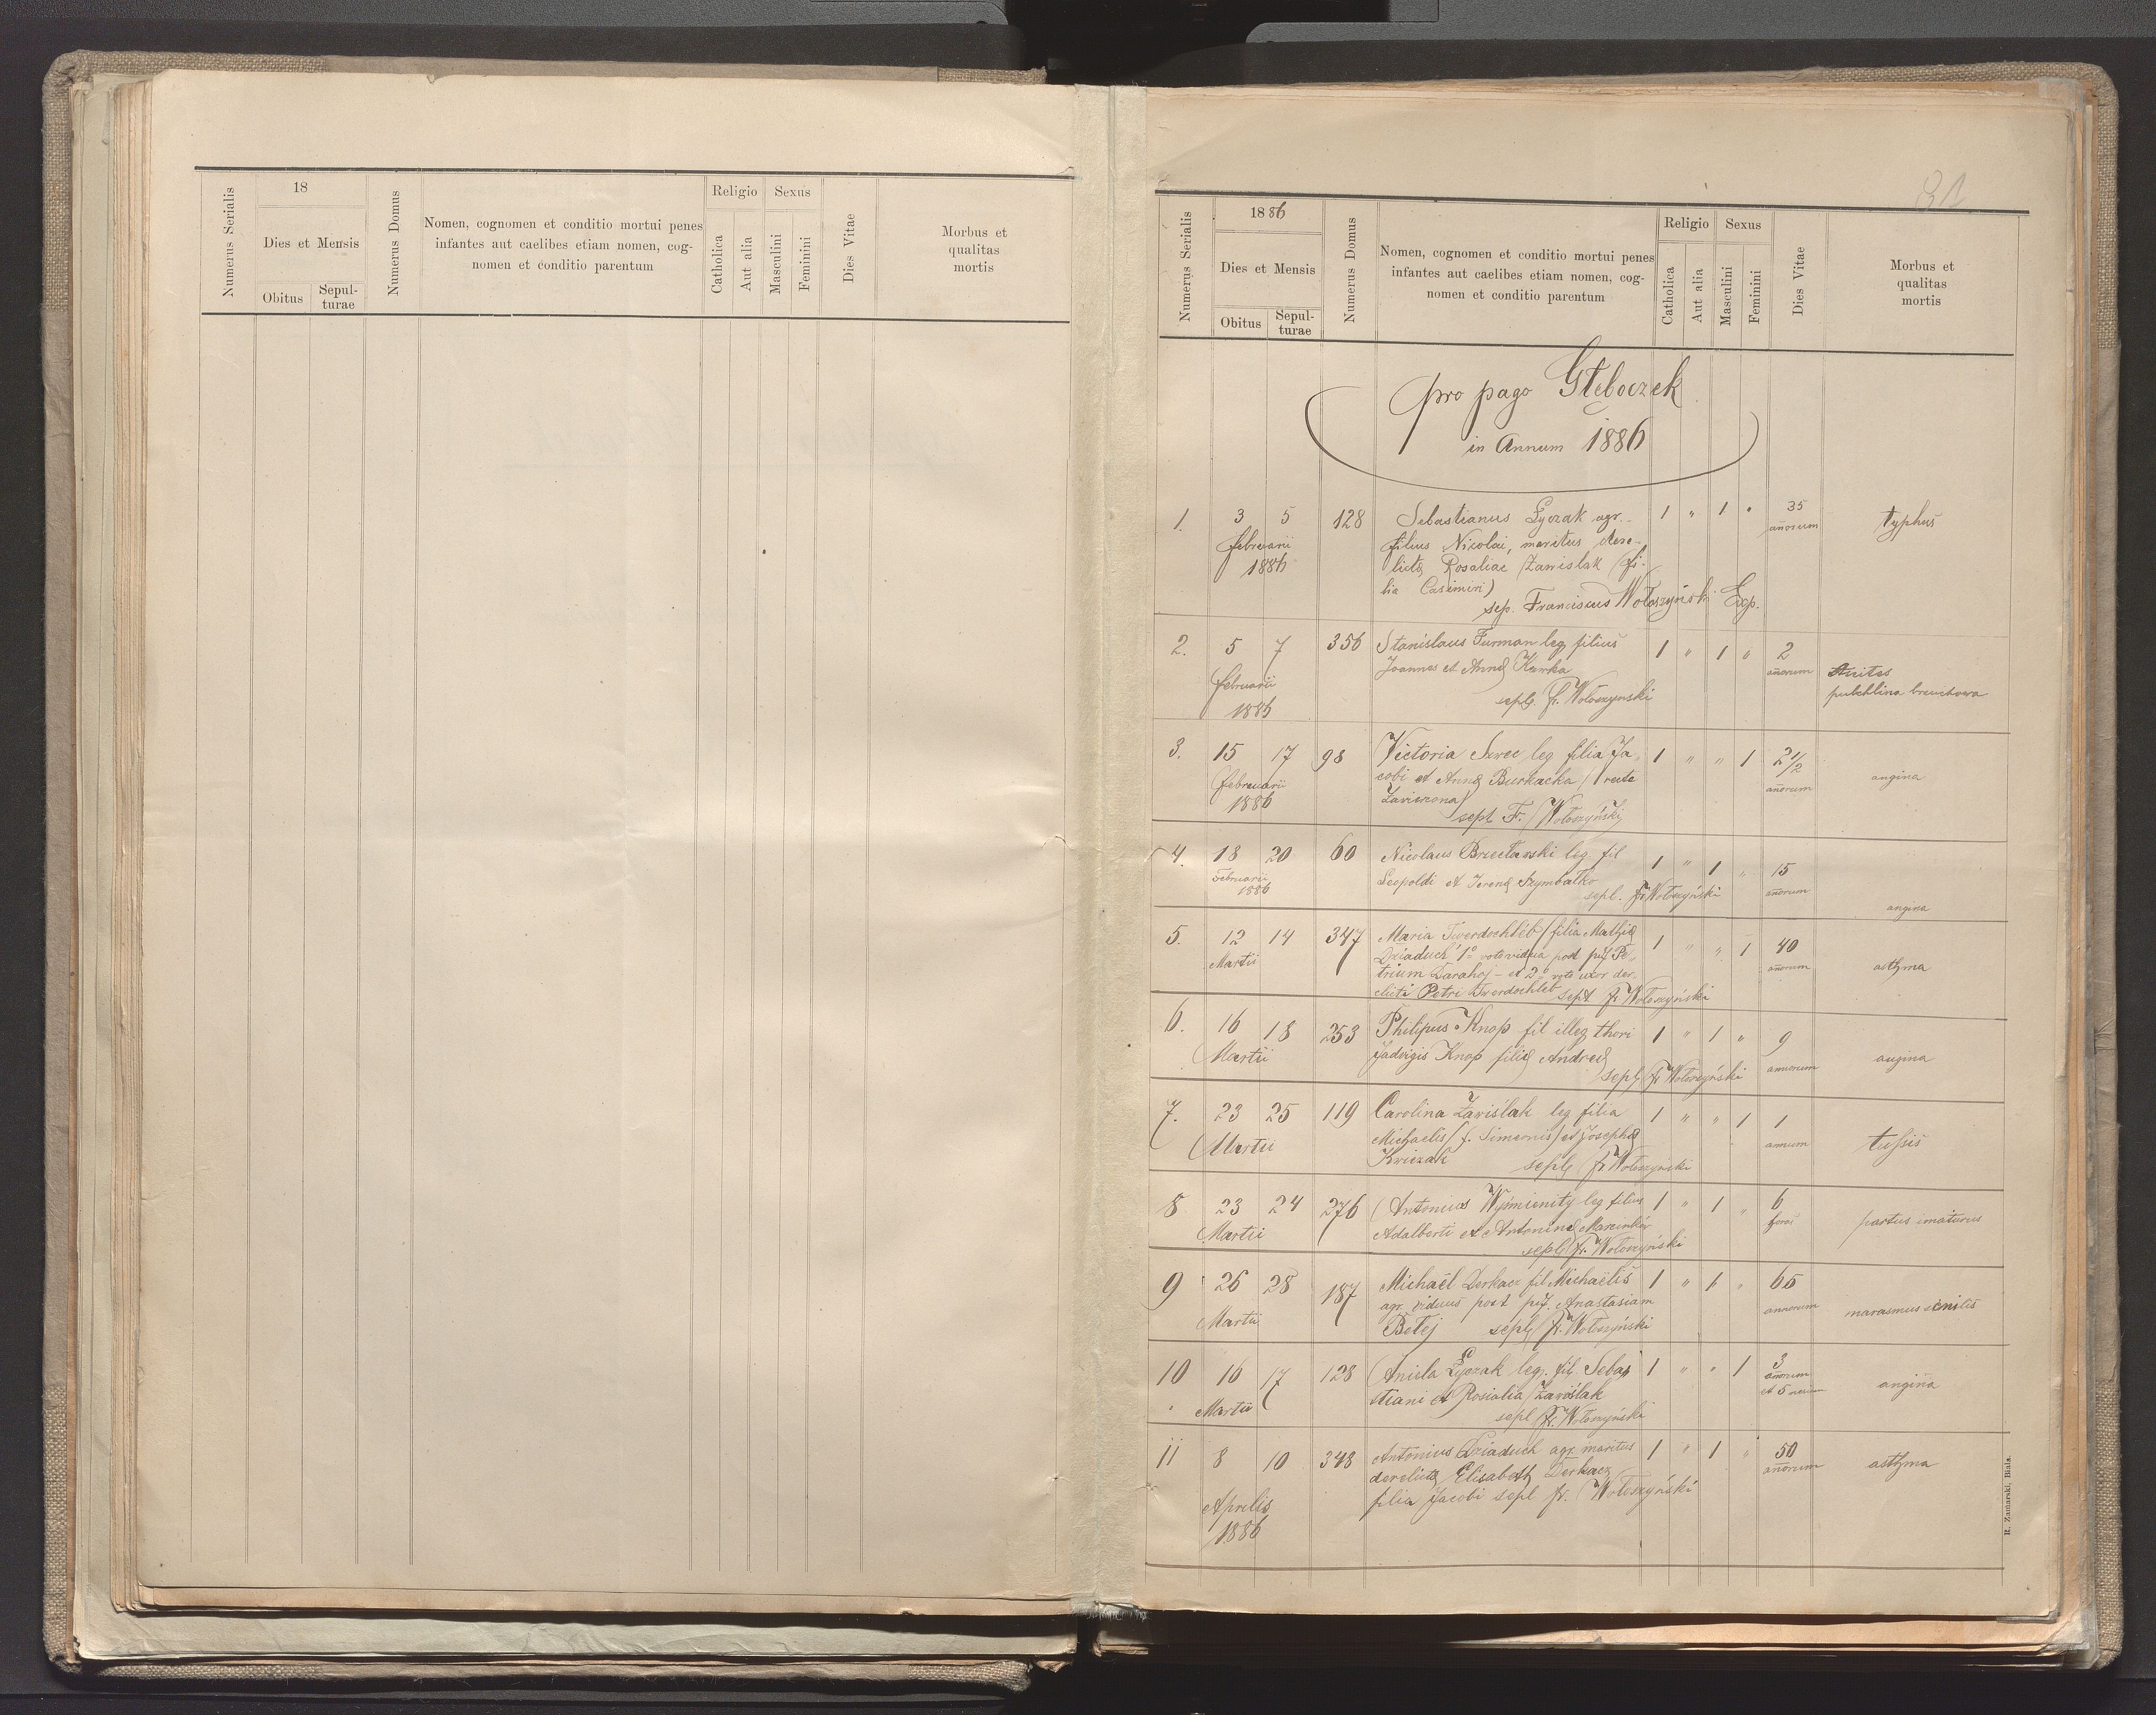 Numerus Serialis
18
Dies et Mensis
Obitus
Sepul-
turae
Numerus Domus
Nomen, cognomen et conditio mortui penes
infantes aut caelibes etiam nomen, cog-
nomen et conditio parentum
Religio
Catholica
Aut alia
Sexus
Masculini
Feminini
Dies Vitae
Morbus et
qualitas
mortis
31
Numerus Serialis
1886
Dies et Mensis
Obitus
Sepul-
turae
Numerus Domus
Nomen, cognomen et conditio mortui penes
infantes aut caelibes etiam nomen, cog-
nomen et conditio parentum
Religio
Catholica
Aut alia
Sexus
Masculini
Feminini
Dies Vitae
Morbus et
qualitas
mortis
pro pago Głęboczek
in Annum 1886
1. 3 5 128 Sebastianus Łyczak agr. 1 " 1 " 35 typhus
februarii filius Nicolai, maritus dere- añorum
1886 lictę Rosaliae (Zawislak (fi-
lia Casimiri)
sep. Franciscus Wołoszyński Exp.
2. 5 7 356 Stanislaus Furman leg filius 1 " 1 " 2
februarii Joannes et Annę Kurka añorum
1886 sepl. fr. Wołoszynski puchlina brzuchowa
3. 15 17 98 Victoria Szwec leg filia Ja- 1 " " 1 2 1/2 angina
februarii cobi et Annę Burkacka / recte añorum
1886
sepl F. Wołoszyński
4. 18 20 60 Nicolaus leg fil 1 " 1 " 15
Februarii Leopoldi et Irenę Szymbałko añorum
1886 sepl. fr Wołoszyński angina
5. 12 14 347 Maria Twerdochlib / filia Mathię 1 " " 1 40
Martii Dziaduch 1º voto vidua post p. Pe- añorum asthma
trium Darahoj - et 2º voto uxor der-
elicti Petri Twerdochlib sepl fr Wołoszyński
6. 16 18 253 Philipus Knap fil illeg thori 1 " 1 " 9
Martii Jadvigis Knap filię Andreę annorum angina
sepl fr Wołoszyński
7. 23 25 119 Carolina Zawiślak leg filia 1 " " 1 1
Martii Michaelis / f. Simeonis / et Josephę annum tussis
sepl fr Wołoszyński
8 23 24 276 Antonius Wyśmienity leg filius 1 " 1 " 6 partus imaturus
Martii Adalberti et Antoninę horas
sepl fr. Wołoszyński
9 26 28 187 Michaël Derkacz fil Michaëlis 1 " 1 " 65
Martii agr. viduus post Anastasiam annorum marasmus senilis
Betej sepl fr. Wołoszyński
10 16 17 128 Aniela Łyczak leg. fil Sebas 1 " " 1 3 angina
Martii tiani et Rosialia Zawislak añorum et 5
sepl fr. Wołoszyński
11 8 10 348 Antonius Dziaduch agr. maritus 1 " 1 " 50 asthma
derelictę Elisabeth Derkacz añorum
Aprilis filia Jacobi sepl fr. Wołoszyński
1886
R. Zamarski. Biala.